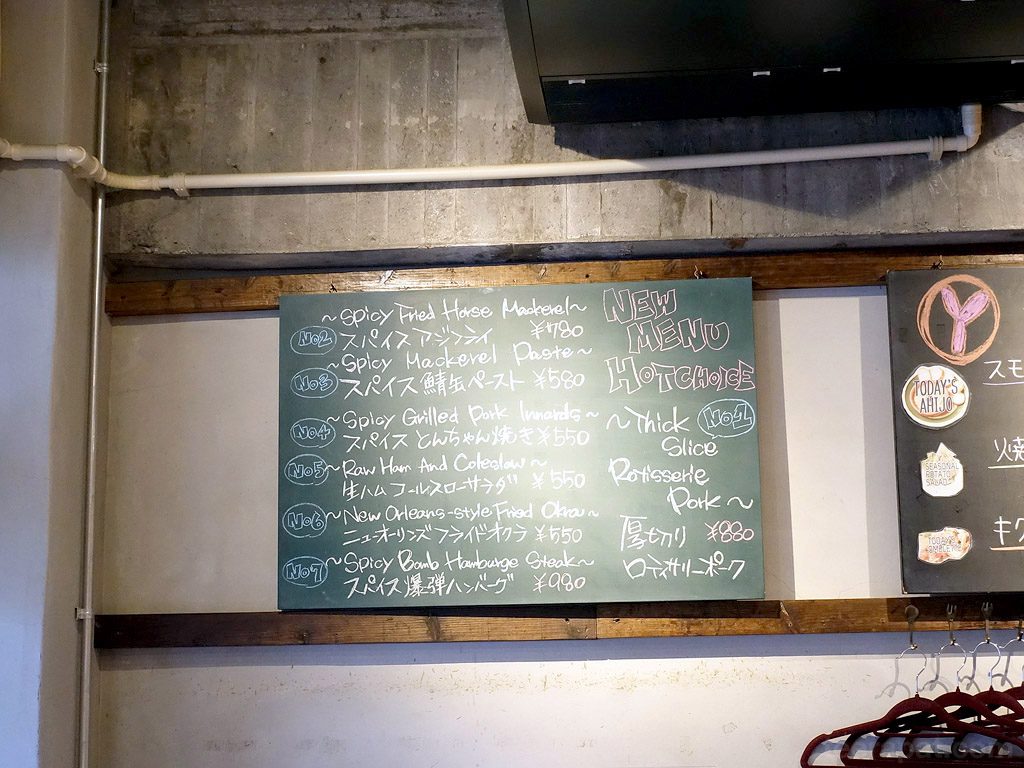 ~Spicy Fried Horse Mackerel~
No2 スパイス アジフライ ¥780
~Spicy Mackerel Paste~
No3 スパイス 鯖缶ペースト ¥580
~Spicy Grilled Pork Innards~
No4 スパイス とんちゃん焼き ¥550
~Raw Ham And Coleslaw~
No5 生ハム コールスローサラダ ¥550
~New Orleans-style Fried Okra~
No6 ニューオーリンズフライドオクラ ¥550
~Spicy Bomb Hamburge Steak~
No7 スパイス 爆弾ハンバーグ ¥980
NEW
MENU
HOTCHOICE
~Thick No1
Slice
Rotisserie
Pork~
厚切り ¥880
ロティサリーポーク
Y
TODAY'S
AHIJO
スモ
SEASONAL
POTATO
SALAD
キク